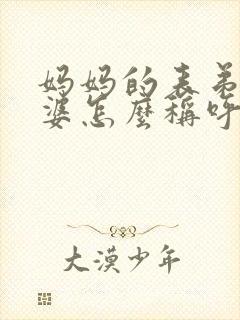 妈妈的表弟
婆怎麼稱呼
大漠少年